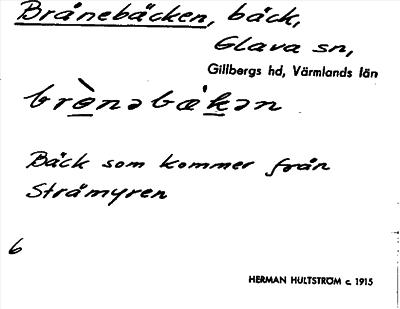 Brånebäcken, bäck,
Glava sn,
Gillbergs hd, Värmlands län
brò̲nəbæ'k̲ən
Bäck som kommer från
Stråmyren
6
HERMAN HULTSTRÖM c. 1915